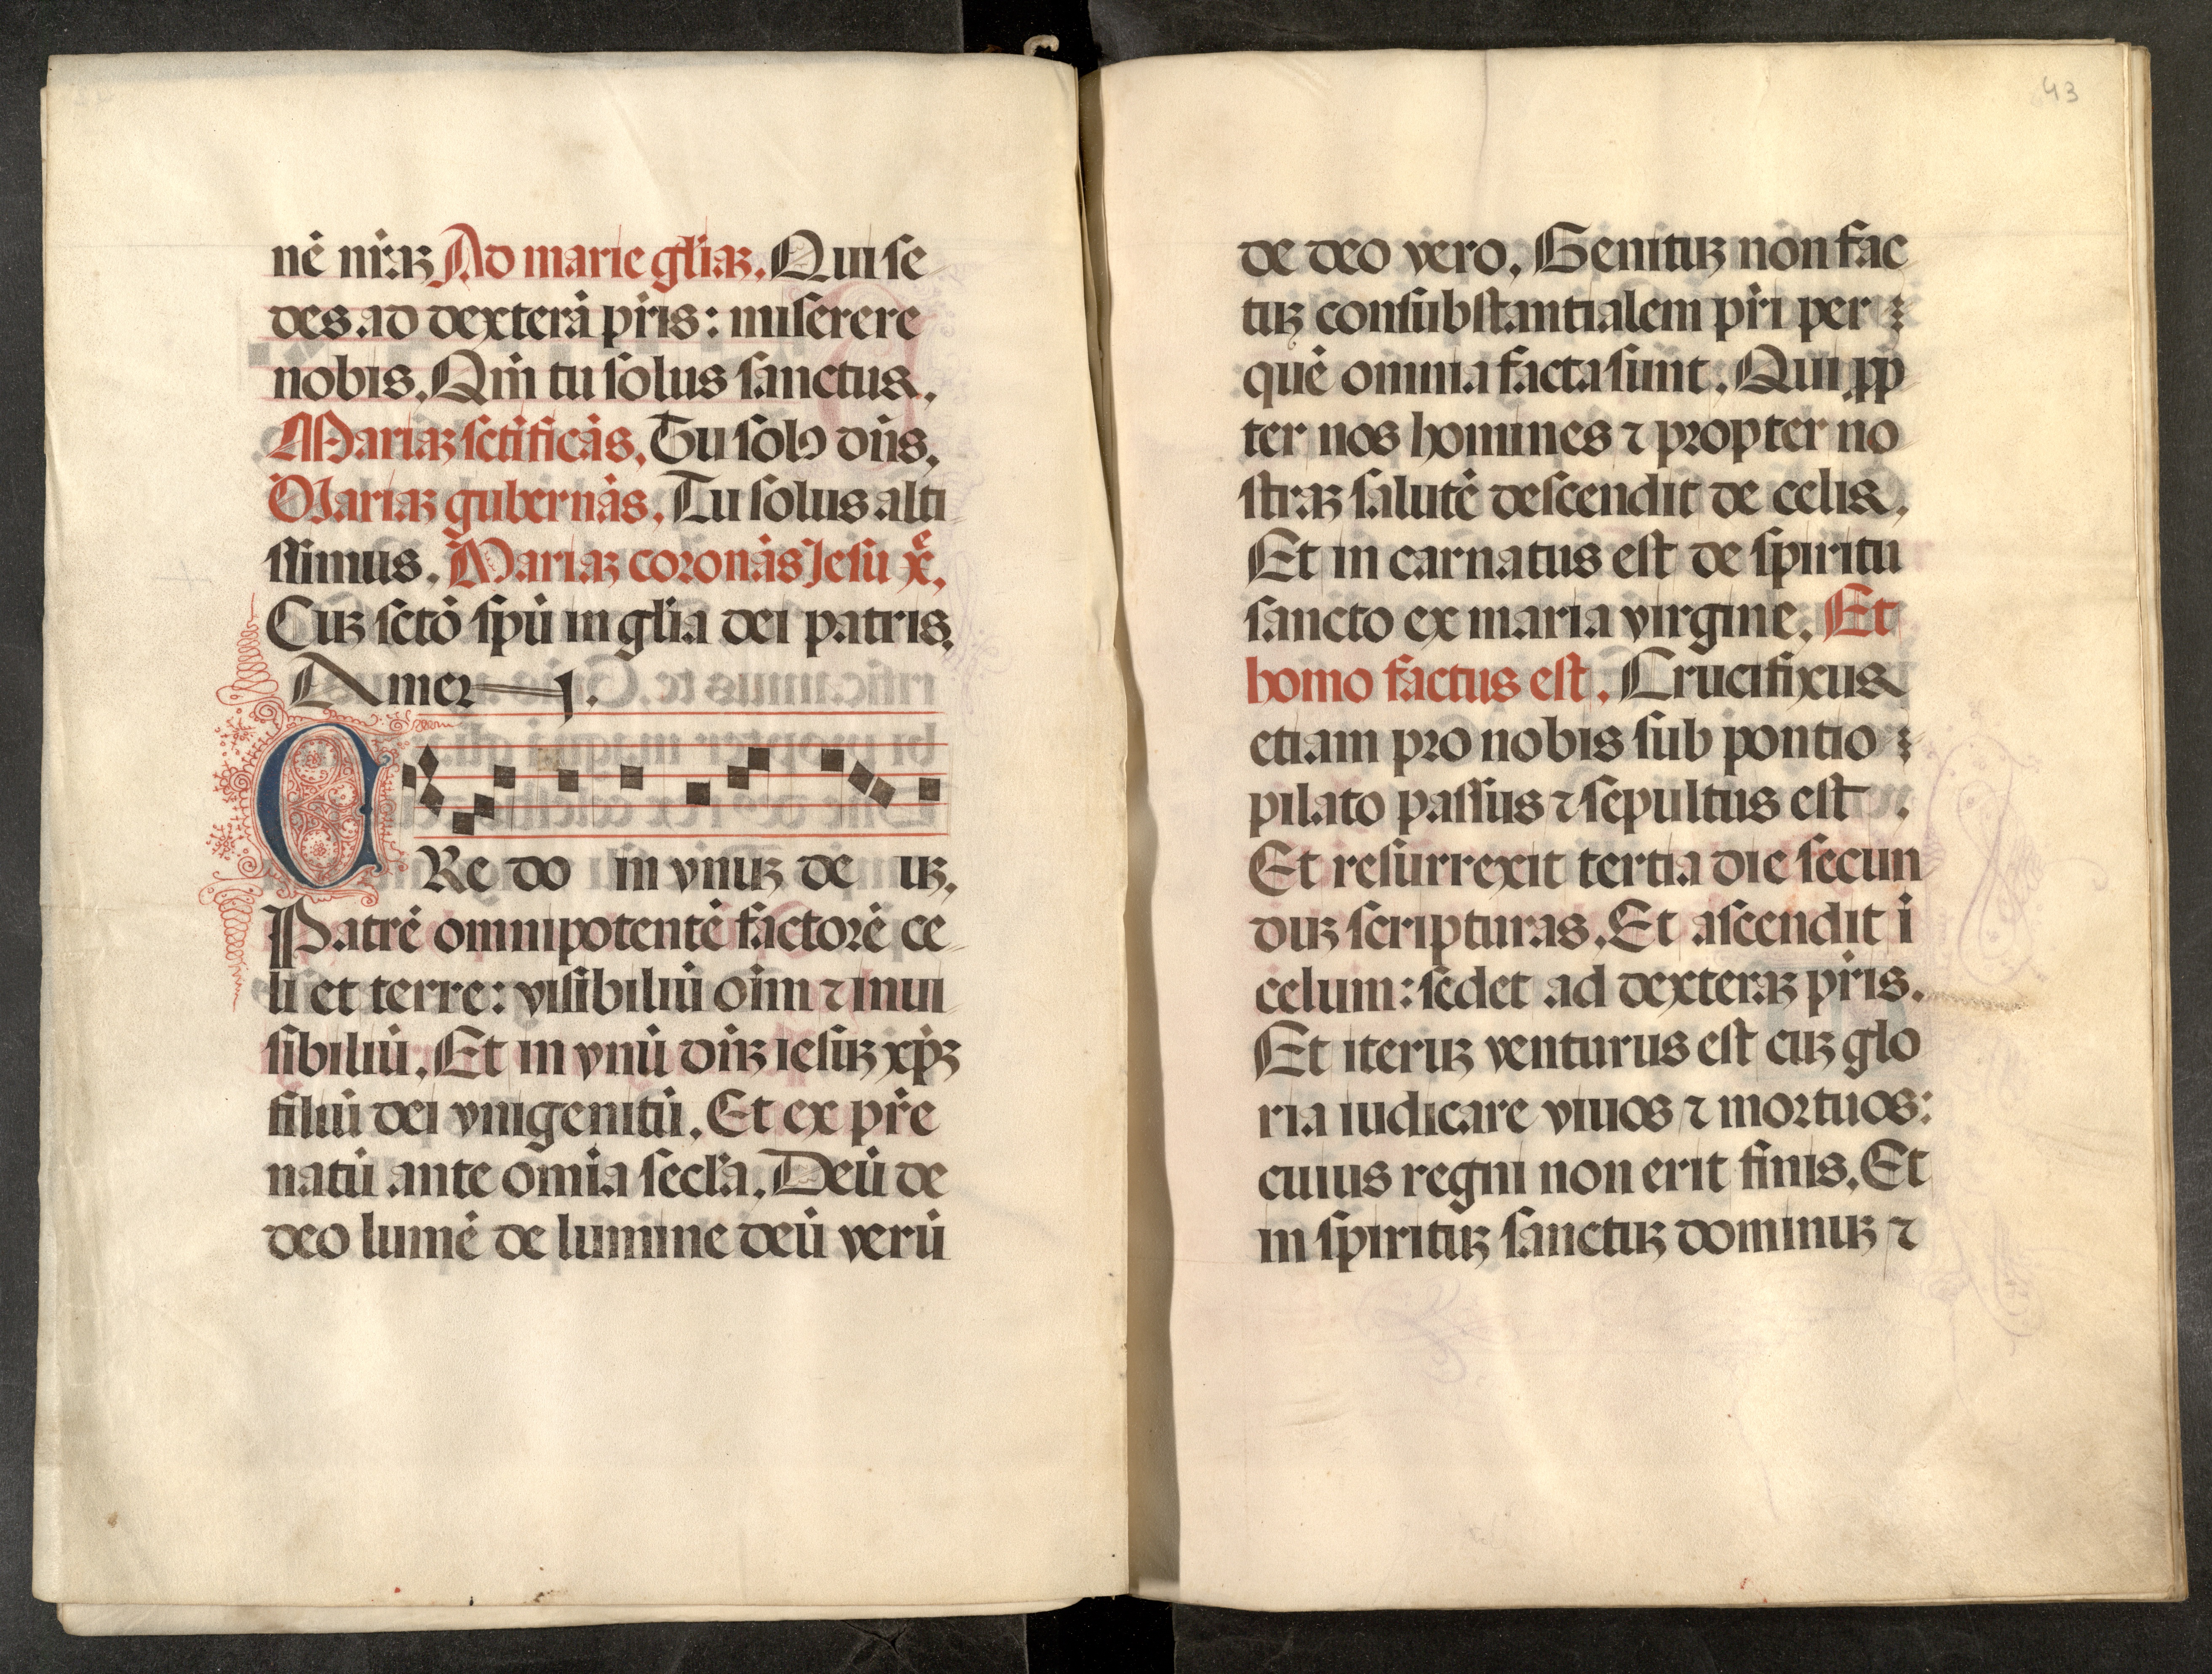 nē nr̄aꝫ Ad marie gl̄iaꝫ. Qui ſe
des ad dexterā pr̄is: miſerere
nobis. Qm̄ tu ſolus ſanctus.
Mariaꝫ ſctīficās. Tu ſolꝰ dn̄s.
Mariaꝫ gubernās. Tu ſolus alti
ſſimus. Mariaꝫ coronās Jeſu xē.
Cuꝫ ſctō ſpū in gl̄ia dei patris.
Amen.
CRe do in vnuꝫ de uꝫ.
Patrē omnipotentē factorē ce
li et terre: viſibiliū oīm ⁊ inui
ſibiliū. Et in vnū dn̄ꝫ ieſuꝫ xp̄ꝫ
filiū dei vnigenitū. Et ex pr̄e
natū ante omīa ſecl̄a. Deū de
deo lumē de lumine deū verū
43
de deo vero. Genituꝫ non fac
tuꝫ conſubſtantialem pr̄i per
quē omnia facta ſunt. Qui ꝓp
ter nos homines ⁊ propter no
ſtraꝫ ſalutē deſcendit de celis.
Et in carnatus eſt de ſpiritu
ſancto ex maria virgine. Et
homo factus eſt. Crucifixus
etiam pro nobis ſub pontio
pilato paſſus ⁊ ſepultus eſt.
Et reſurrexit tertia die ſecun
duꝫ ſcripturas. Et aſcendit ī
celum: ſedet ad dexteraꝫ pr̄is.
Et iteruꝫ venturus eſt cuꝫ glo
ria iudicare viuos ⁊ mortuos:
cuius regni non erit finis. Et
in ſpirituꝫ ſanctuꝫ dominuꝫ ⁊